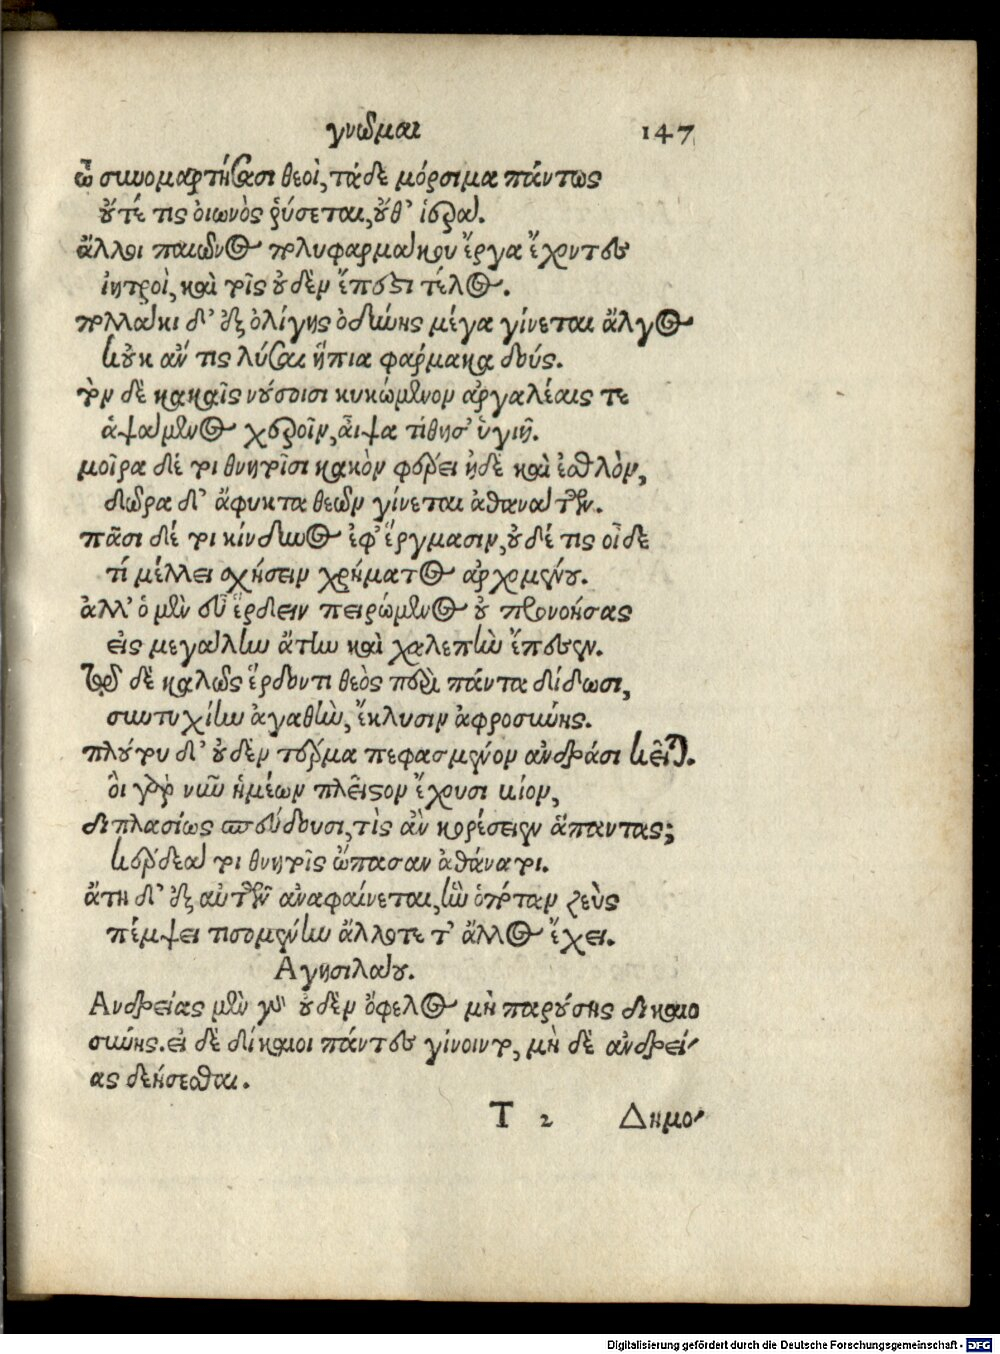 γνῶμαι 147
ᾧ συνομαρτήσασι θεοὶ, τάδε μόρσιμα πάντως
οὔτέ τις οἰωνὸς ῥύσεται, οὔθ' ἱερά.
ἄλλοι παιῶνος πολυφαρμάκου ἔργα ἔχοντες
ἰητροὶ, καὶ τοῖς οὐδὲν ἔπεστι τέλος.
πολλάκι δ' ἐξ ὀλίγης ὀδύνης μέγα γίνεται ἄλγος
κοὐκ ἄν τις λύσαι ἤπια φάρμακα δούς.
τὸν δὲ κακαῖς νούσοισι κυκώμενον ἀργαλέαις τε
ἁψάμενος χεροῖν, αἶψα τίθησ' ὑγιῆ.
μοῖρα δέ τοι θνητοῖσι κακὸν φέρει ἠδὲ καὶ ἐσθλὸν,
δῶρα δ' ἄφυκτα θεῶν γίνεται ἀθανάτων.
πᾶσι δέ τοι κίνδυνος ἐφ' ἔργμασιν, οὐδέ τις οἶδε
τί μέλλει σχήσειν χρήματος ἀρχομένου.
ἀλλ' ὁ μὲν εὖ ἕρδειν πειρώμενος οὐ προνοήσας
εἰς μεγάλην ἄτην καὶ χαλεπὴν ἔπεσεν.
τῷ δὲ καλῶς ἕρδοντι θεὸς περὶ πάντα δίδωσι,
συντυχίην ἀγαθὴν, ἔκλυσιν ἀφροσύνης.
πλούτου δ' οὐδὲν τέρμα πεφασμένον ἀνδράσι κεῖται.
οἳ γὰρ νῦν ἡμέων πλεῖστον ἔχουσι βίον,
διπλασίως σπεύδουσι, τὶς ἂν κορέσειεν ἅπαντας;
κέρδεά τοι θνητοῖς ὤπασαν ἀθάνατοι.
ἄτη δ' ἐξ αὐτῶν ἀναφαίνεται, ἣν ὁπόταν ζεὺς
πέμψει τισομένην ἄλλοτε τ' ἄλλος ἔχει.
Αγησιλάου.
Ανδρείας μὲν γὰρ οὐδὲν ὄφελος μὴ παρούσης δικαιο
σύνης. εἰ δὲ δίκαιοι πάντες γίνοιντο, μὴ δὲ ἀνδρεί-
ας δεήσεσθαι.
T 2 Δημο-
Digitalisierung gefördert durch die Deutsche Forschungsgemeinschaft - DFG